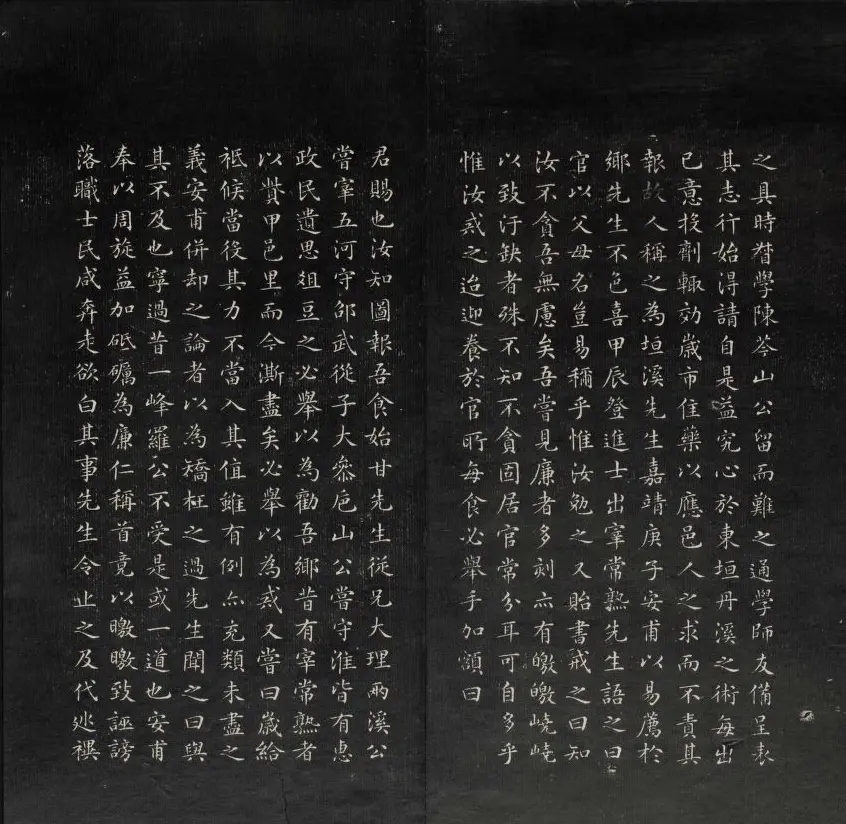 之具時督學陳岑山公留而難之通學師友備呈表
其志行始淂請自是益究心於東垣丹溪之術每出
已意投劑輙効歲市佳藥以應邑人之求而不責其
報故人稱之為垣溪先生嘉靖庚子安甫以易薦於
鄉先生不色喜甲辰登進士出宰常熟先生語之曰
官以父母名豈易稱乎惟汝勉之又貽書戒之曰知
汝不貪吾無慮矣吾嘗見廉者多刻亦有皦皦嶢嶢
以致汙缺者殊不知不貪固居官常分耳可自多乎
惟汝戒之迨迎養於官所每食必舉手加額曰
君賜也汝知圖報吾食始甘先生從兄大理兩溪公
嘗宰五河守邵武從子大叅巵山公嘗守淮皆有惠
政民遺思俎豆之必舉以為勸吾鄉昔有宰常熟者
以貲甲邑里而今澌盡矣必舉以為戒又嘗曰歲給
祗候當役其力不當入其值雖有例亦充類未盡之
義安甫併却之論者以為矯枉之過先生聞之曰與
其不及也寧過昔一峰羅公不受是或一道也安甫
奉以周旋益加砥礪為廉仁稱首竟以曒曒致誣謗
落職士民咸奔走欲白其事先生令止之及代巡襈